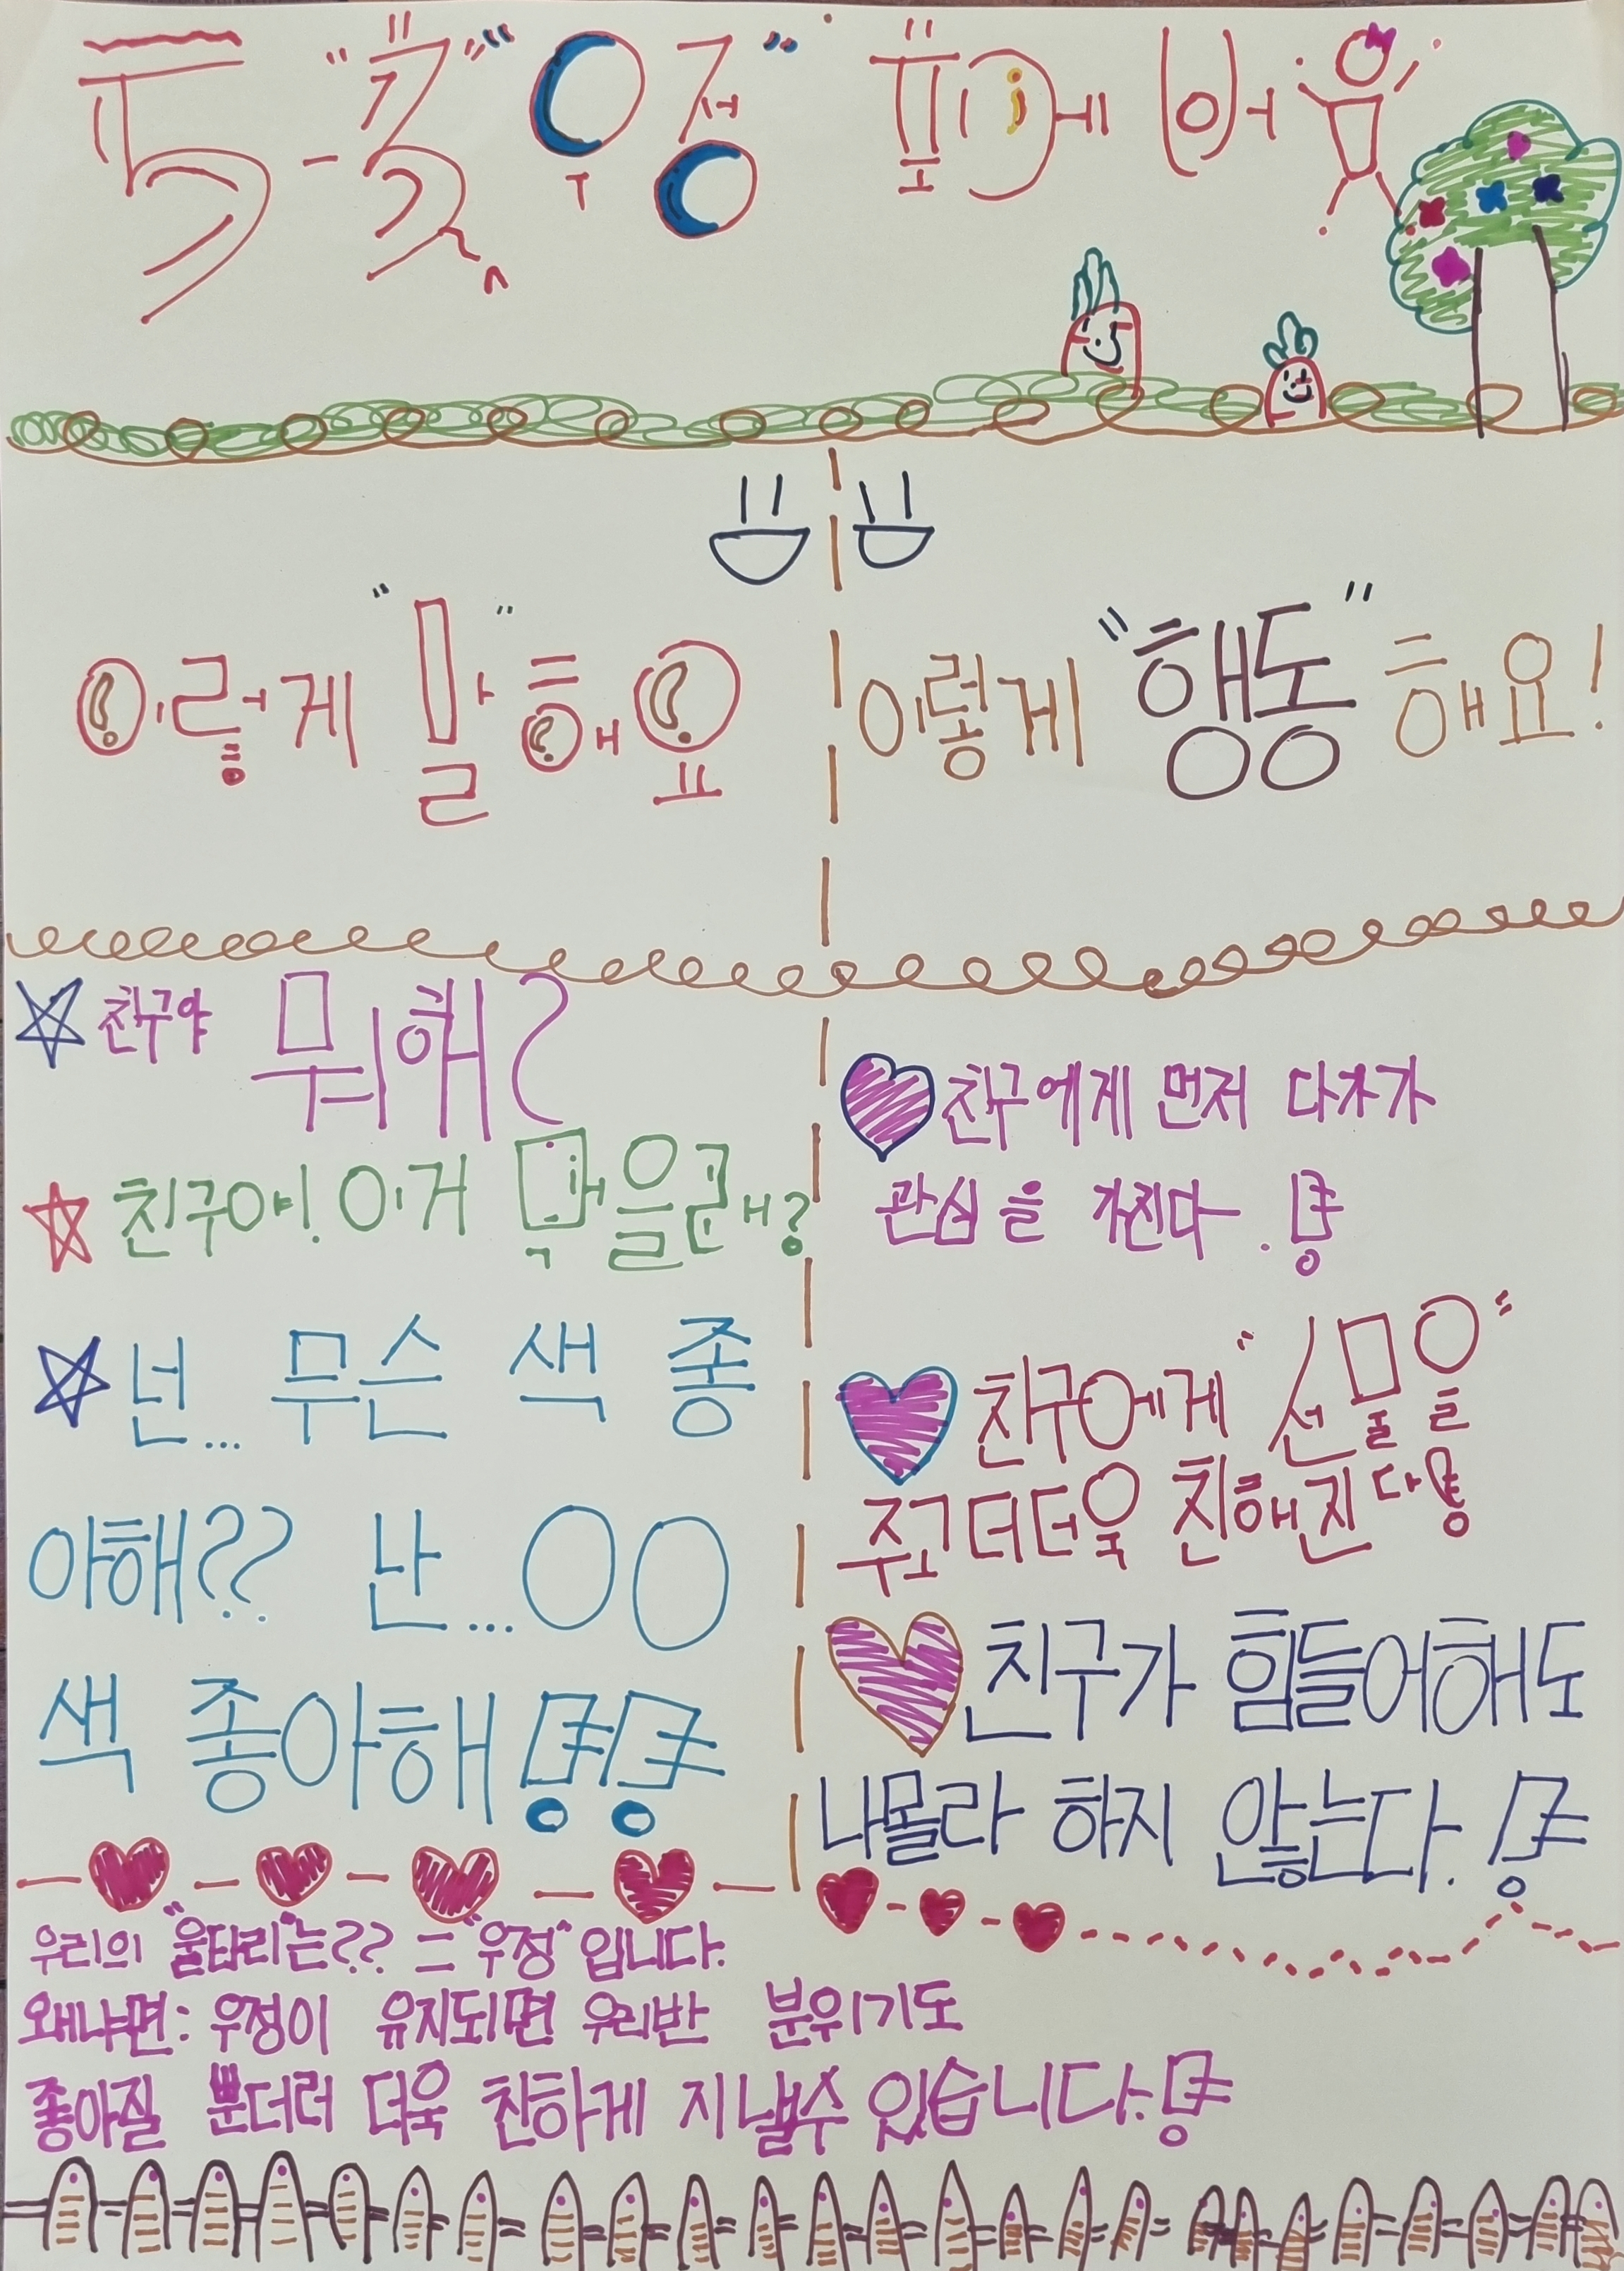 "우정" 포에버
이렇게 "말"해요
이렇게 "행동" 해요!
친구야 뭐해?
친구야! 이거 먹을래?
넌... 무슨 색 좋
아해?? 난...OO
색 좋아해!!
친구에게 먼저 다가가
관심을 가진다.!
친구에게 "선물을"
주고 더더욱 친해진다!
친구가 힘들어해도
나몰라 하지 않는다.!
우리의 "울타리"는?? = "우정"입니다.
왜냐면: 우정이 유지되면 우리반 분위기도
좋아질 뿐더러 더욱 친하게 지낼수 있습니다.!